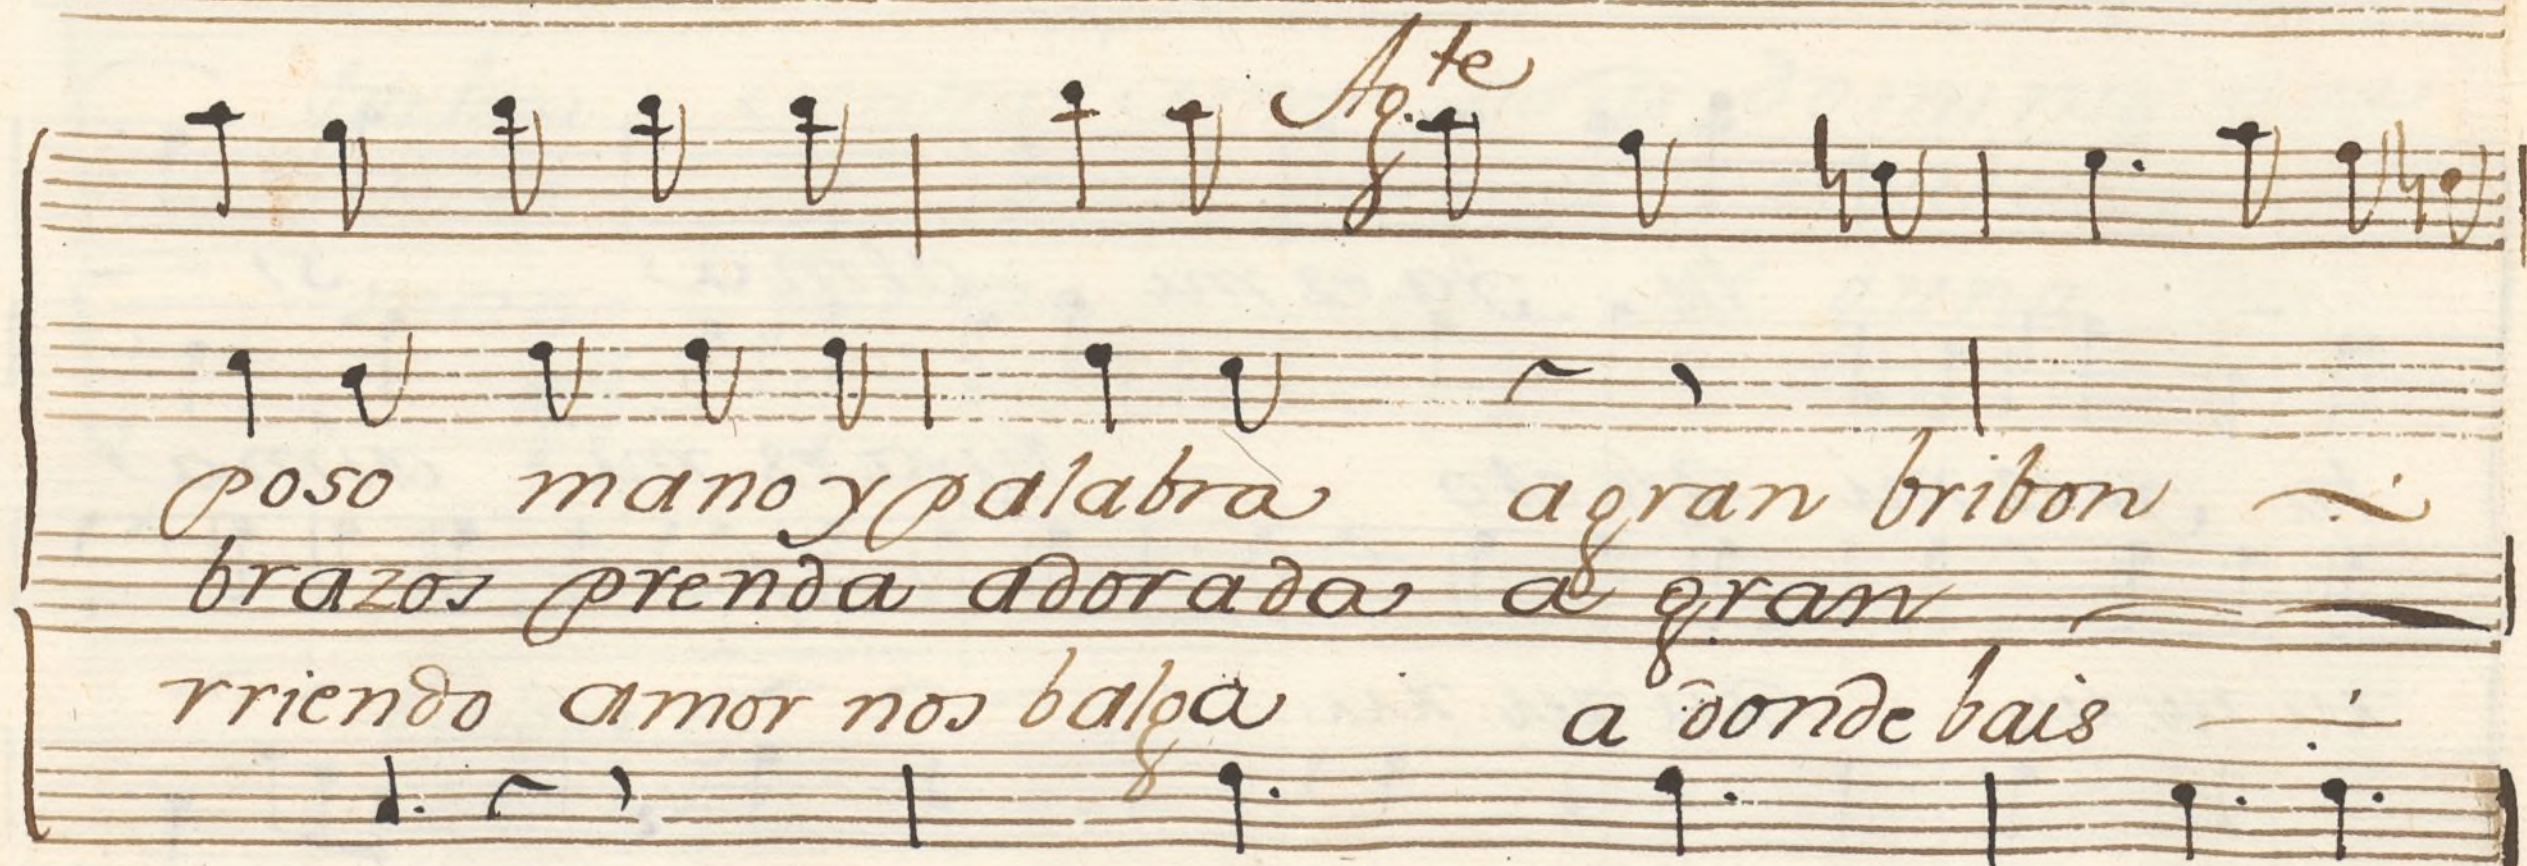 Ag.te
poso mano y palabra a gran bribon
brazos prenda adorada a gran
rriendo amor nos balga a donde bais